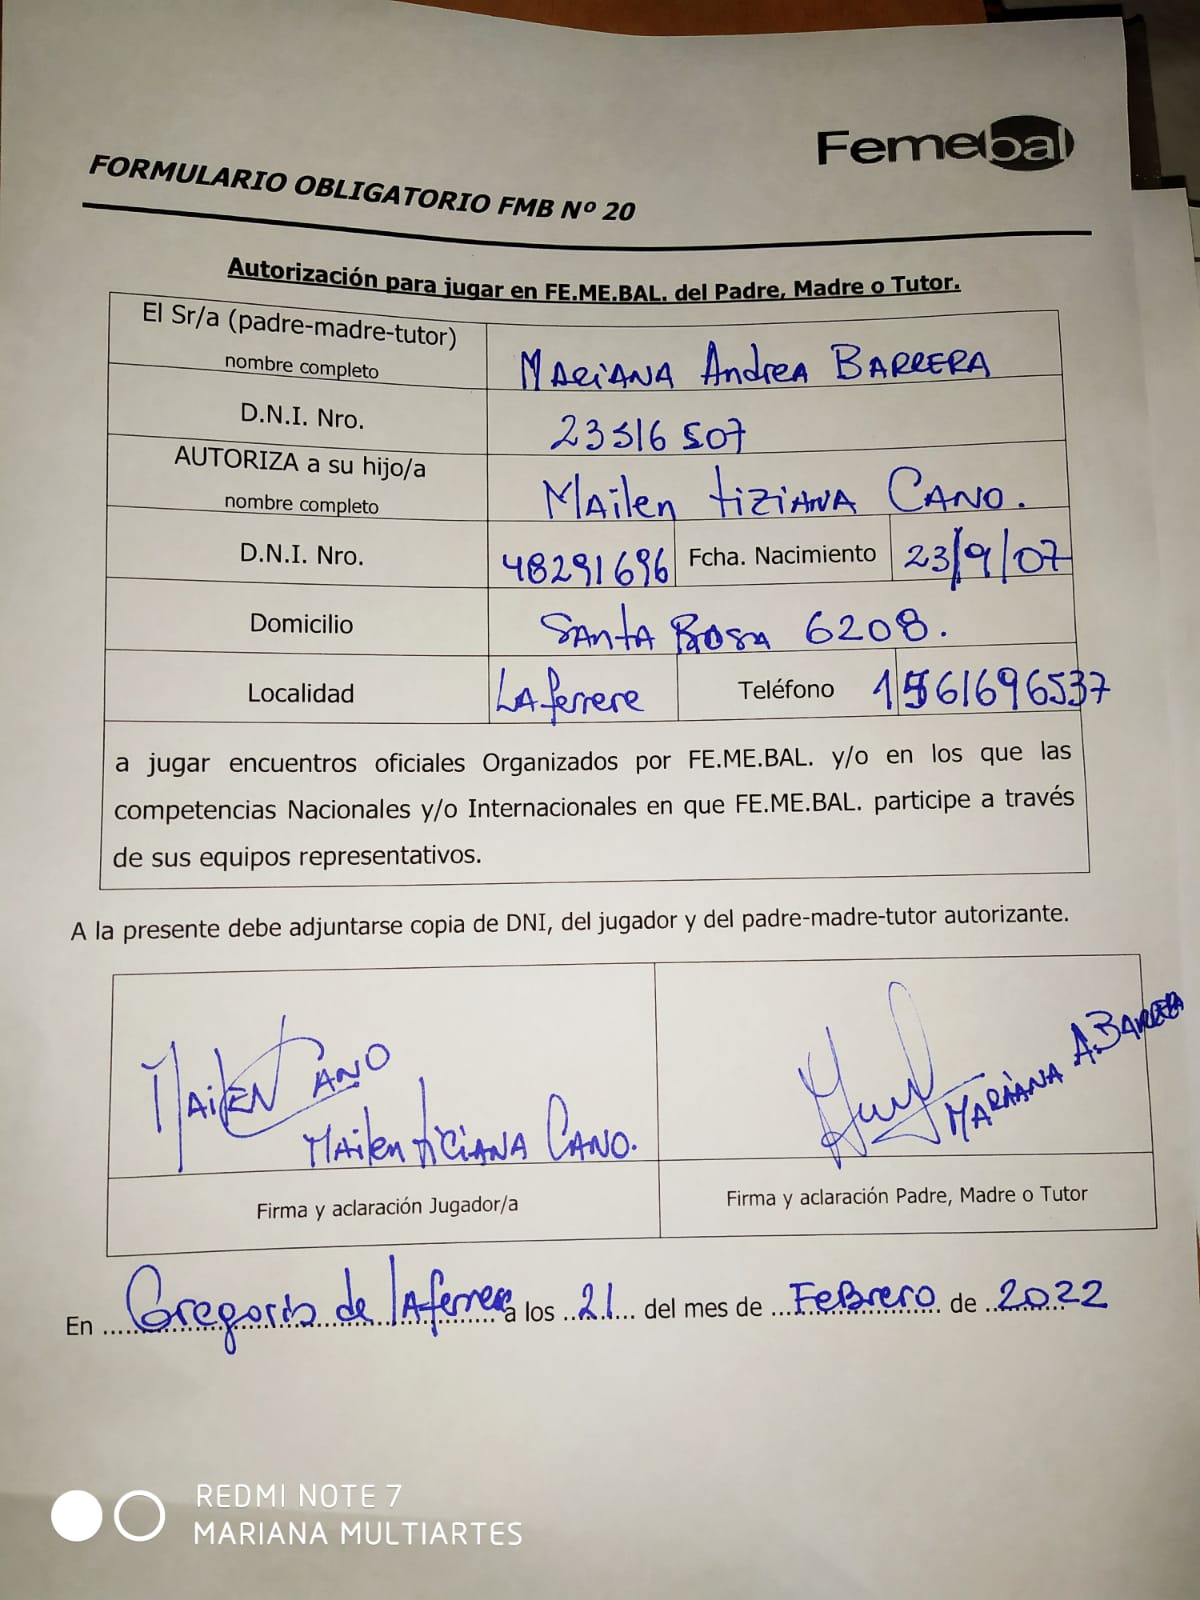 Femebal
FORMULARIO OBLIGATORIO FMB Nº 20
Autorización para jugar en FE.ME.BAL. del Padre, Madre o Tutor.
El Sr/a (padre-madre-tutor)
nombre completo
MARiANA AndreA BARRERA
D.N.I. Nro.
23316507
AUTORIZA a su hijo/a
nombre completo
MAilen tiZiANA CANO.
D.N.I. Nro.
48291696
Fcha. Nacimiento
23/9/07
Domicilio
SAntA ROSA 6208.
Localidad
LAferrere
Teléfono
1561696537
a jugar encuentros oficiales Organizados por FE.ME.BAL. y/o en los que las
competencias Nacionales y/o Internacionales en que FE.ME.BAL. participe a través
de sus equipos representativos.
A la presente debe adjuntarse copia de DNI, del jugador y del padre-madre-tutor autorizante.
MAilEN CANO
MAilen tiCiANA CANO.
MARiANA A BARRERA
Firma y aclaración Jugador/a
Firma y aclaración Padre, Madre o Tutor
En Gregorio de lAferrere a los 21 del mes de FeBrero de 2022
REDMI NOTE 7
MARIANA MULTIARTES